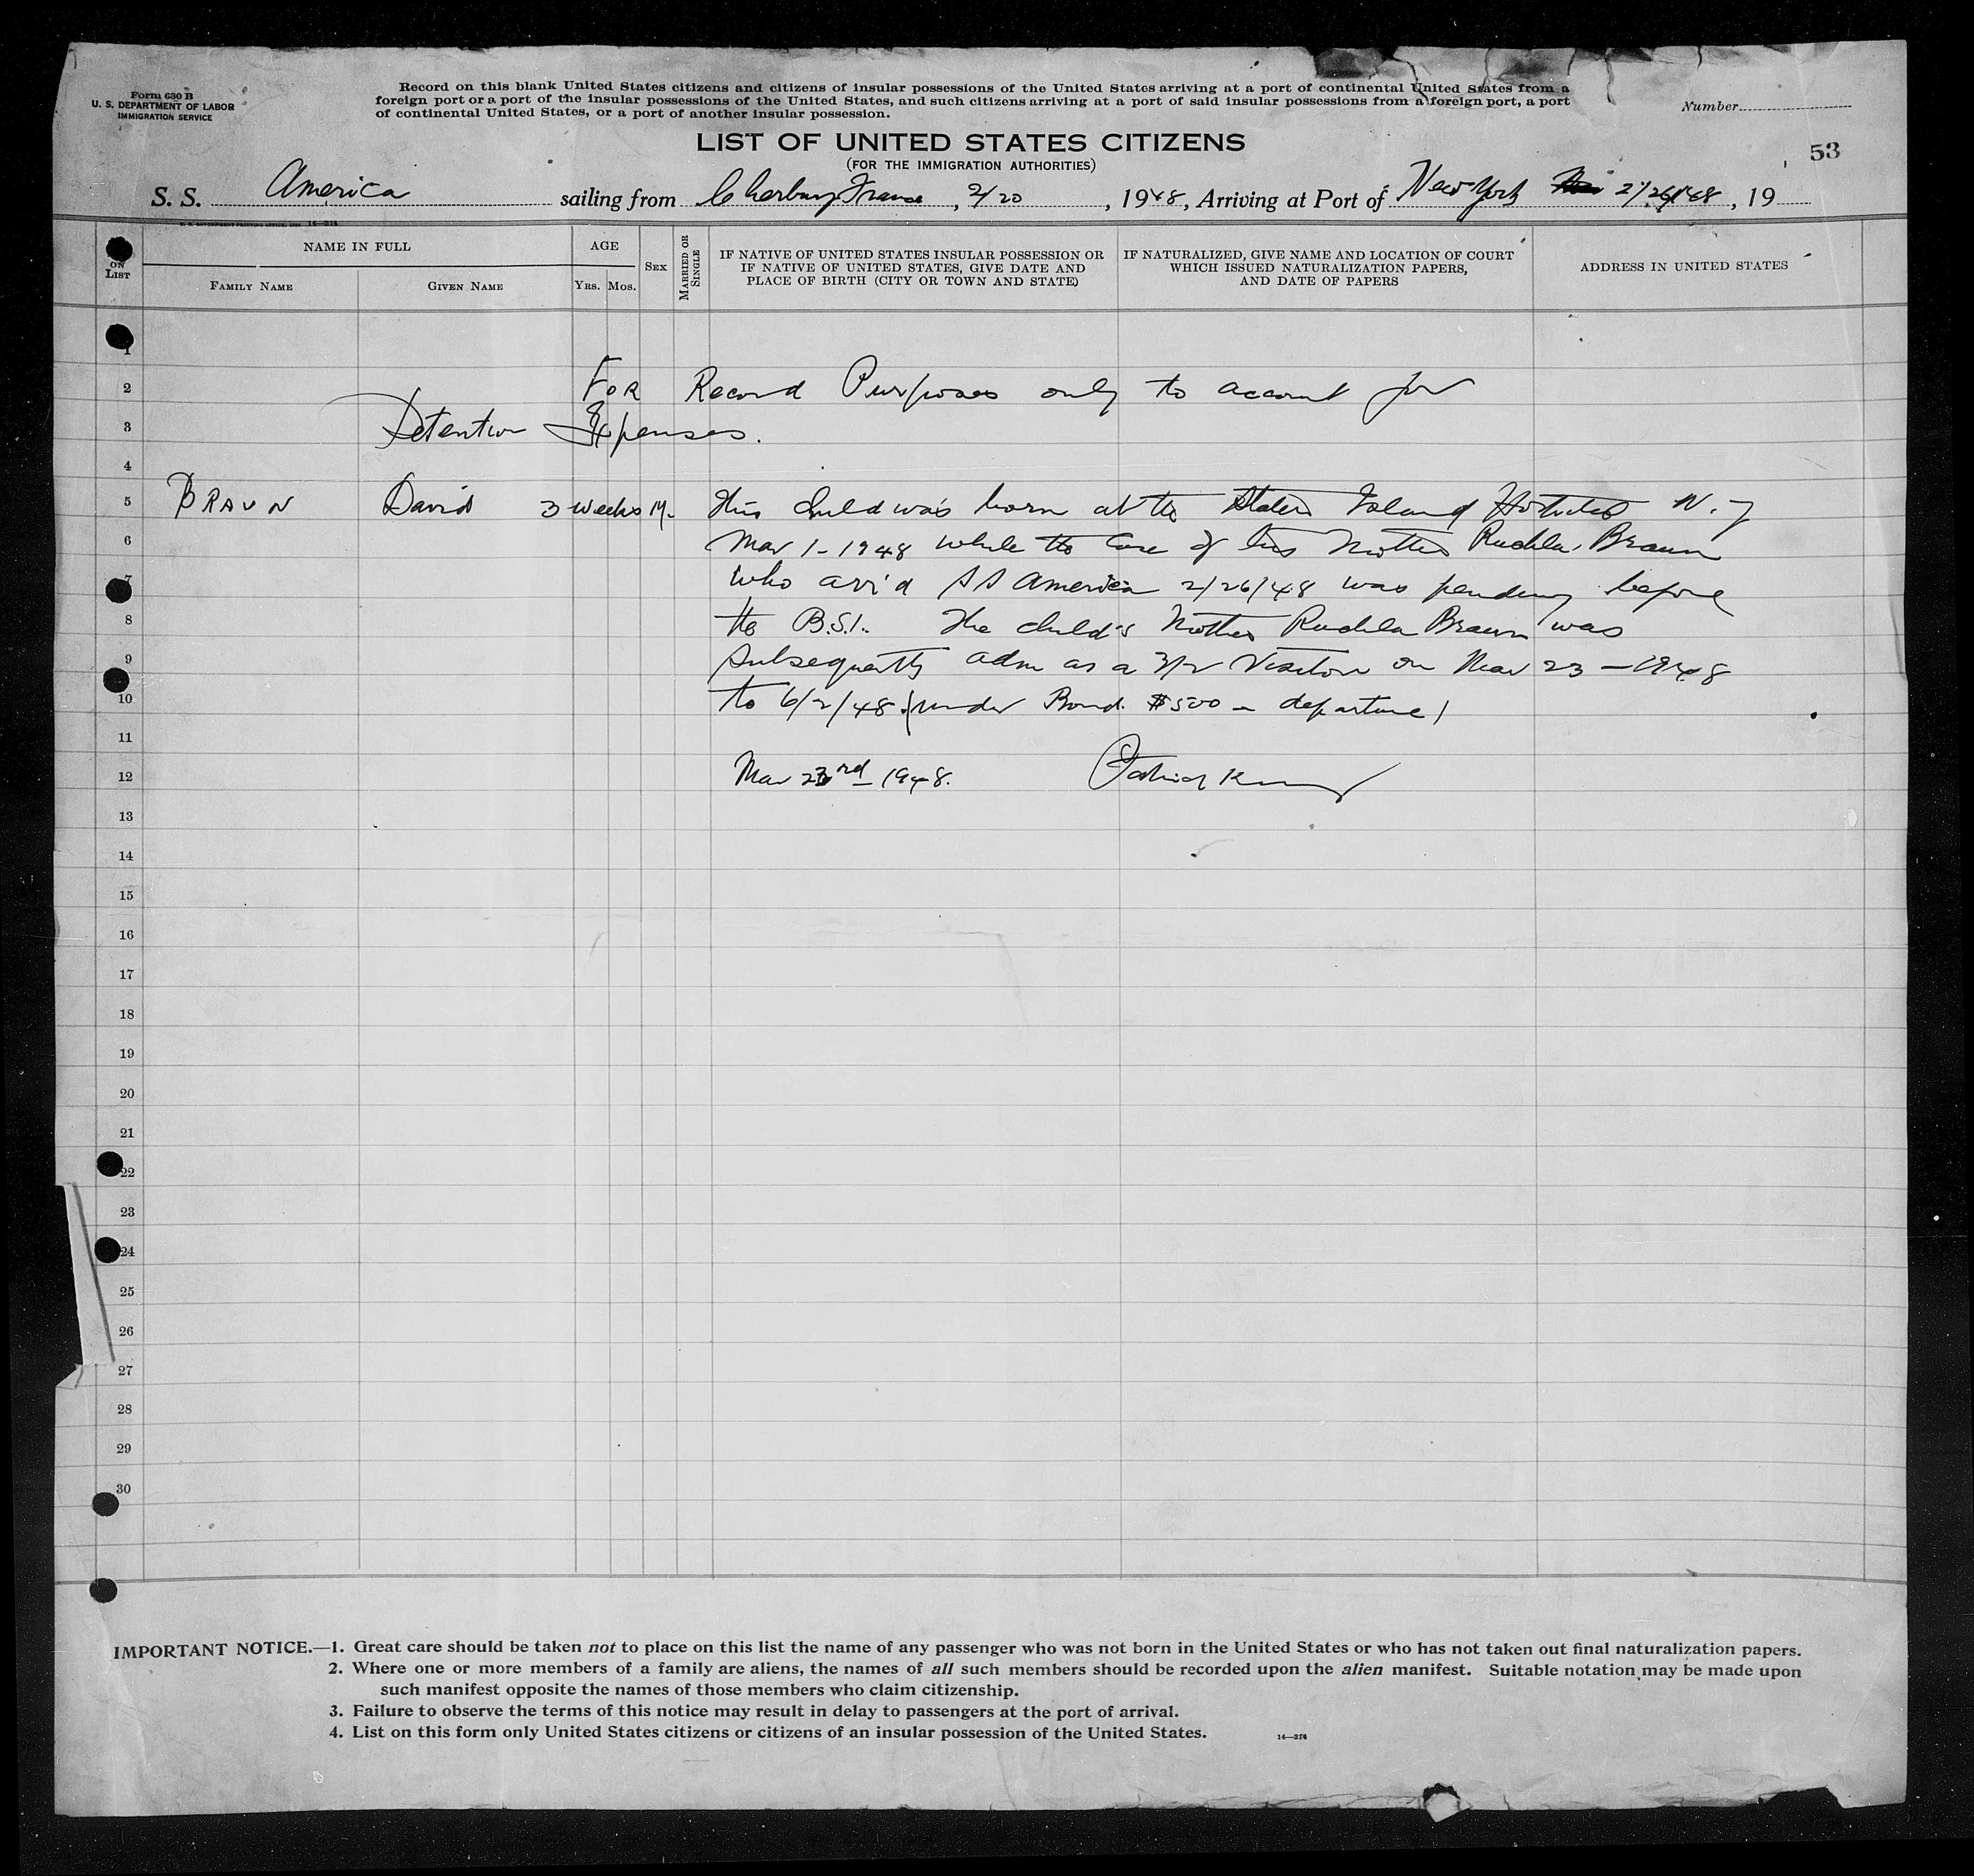 Form 630 B
U. S. DEPARTMENT OF LABOR
IMMIGRATION SERVICE
Record on this blank United States citizens and citizens of insular possessions of the United States arriving at a port of continental United States from a
foreign port or a port of the insular possessions of the United States, and such citizens arriving at a port of said insular possessions from a foreign port, a port
of continental United States, or a port of another insular possession.
Number
LIST OF UNITED STATES CITIZENS
(FOR THE IMMIGRATION AUTHORITIES)
53
S. S. America sailing from Cherbourg France, 2/20, 1948, Arriving at Port of New York 2/26/48, 19
14—214
ON LIST
NAME IN FULL
FAMILY NAME
GIVEN NAME
AGE
YRS. MOS.
SEX
MARRIED OR SINGLE
IF NATIVE OF UNITED STATES INSULAR POSSESSION OR
IF NATIVE OF UNITED STATES, GIVE DATE AND
PLACE OF BIRTH (CITY OR TOWN AND STATE)
IF NATURALIZED, GIVE NAME AND LOCATION OF COURT
WHICH ISSUED NATURALIZATION PAPERS,
AND DATE OF PAPERS
ADDRESS IN UNITED STATES
1
2 For Record Purposes only to account for
3 Detention Expenses.
4
5 BRAUN David 3 weeks M. This child was born at the Staten Island Hospital N. Y
6 Mar 1-1948 while the case of his mother Ruchla Braun
7 who arr'd SS America 2/26/48 was pending before
8 the B.S.I. The child's mother Ruchla Braun was
9 subsequently adm as a 3/2 Visitor on Mar 23-1948
10 to 6/2/48 (under Bond $500 - departure)
11
12 Mar 23rd 1948. Patrick
13
14
15
16
17
18
19
20
21
22
23
24
25
26
27
28
29
30
IMPORTANT NOTICE.—1. Great care should be taken not to place on this list the name of any passenger who was not born in the United States or who has not taken out final naturalization papers.
2. Where one or more members of a family are aliens, the names of all such members should be recorded upon the alien manifest. Suitable notation may be made upon
such manifest opposite the names of those members who claim citizenship.
3. Failure to observe the terms of this notice may result in delay to passengers at the port of arrival.
4. List on this form only United States citizens or citizens of an insular possession of the United States.
14—214